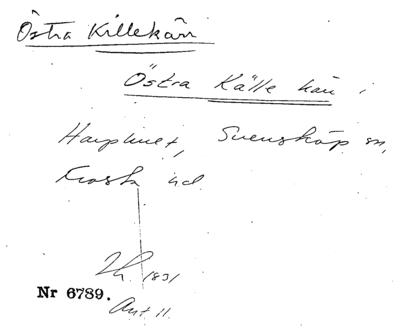 Östra Killekärr
Östra Källe kärr i
Harphult, Svensköp sn,
Frosta hd.
1831
Nr 6789.
Akt 11.